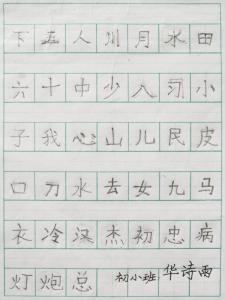 下五人川月水田
六十中少入习小
子我心山儿民皮
口刀水去女九马
衣冷汉杰初忠病
灯炮总 初小班:华诗雨